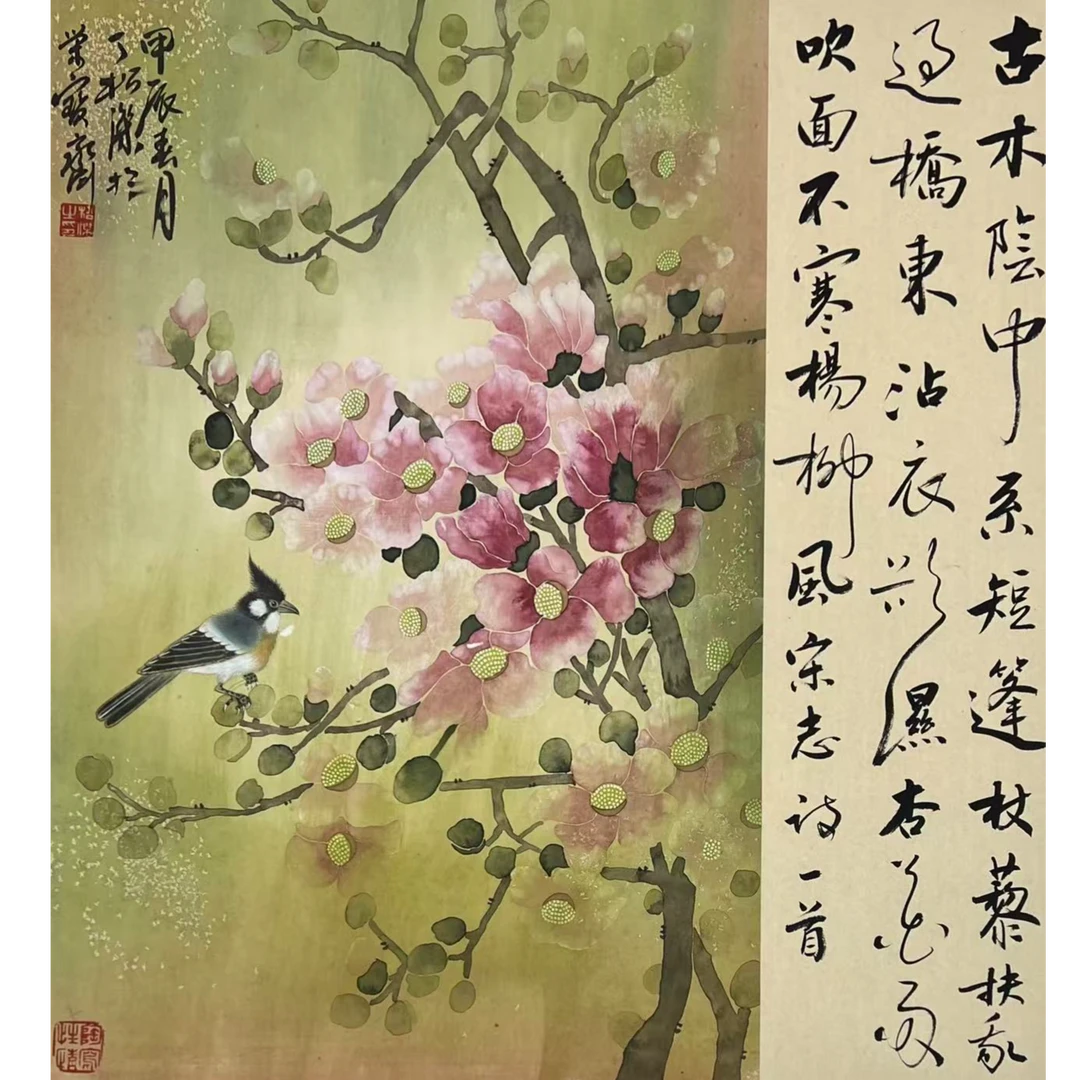 古木陰中系短篷杖藜扶我
過橋東沾衣欲濕杏花雨
吹面不寒楊柳風宋志诗一首
甲辰春月
丁松於
榮寶齋
陶寫
性情